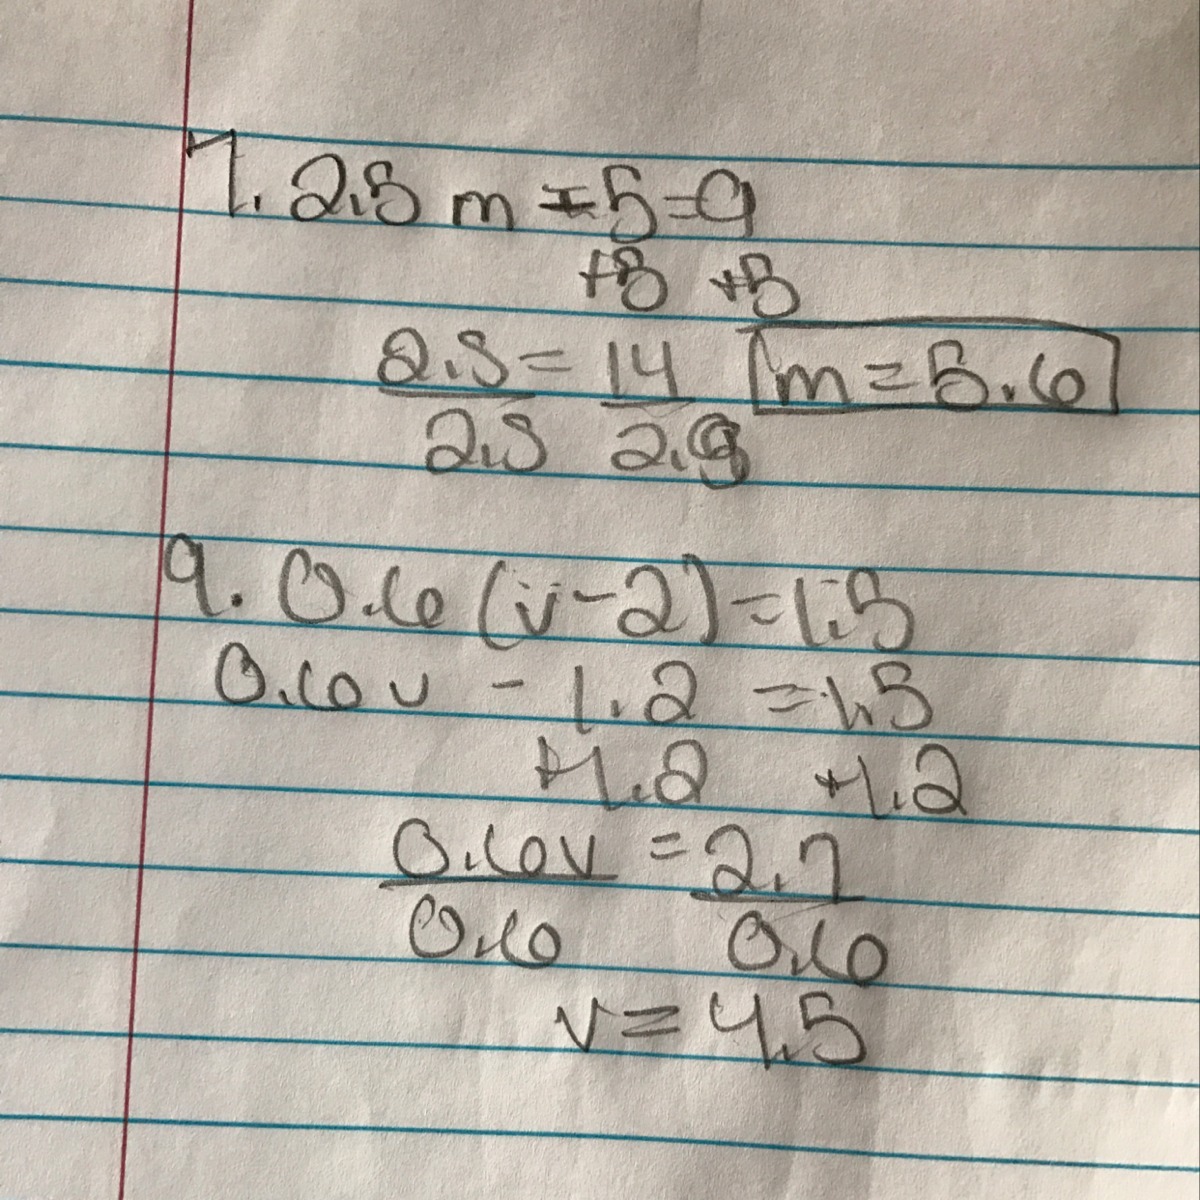 7. 2.5 m - 5 = 9
+5 +5
2.5 = 14 m = 5.6
2.5 2.5
9. 0.6 (v - 2) = 1.5
0.6 v - 1.2 = 1.5
+1.2 +1.2
0.6v = 2.7
0.6 0.6
v = 4.5